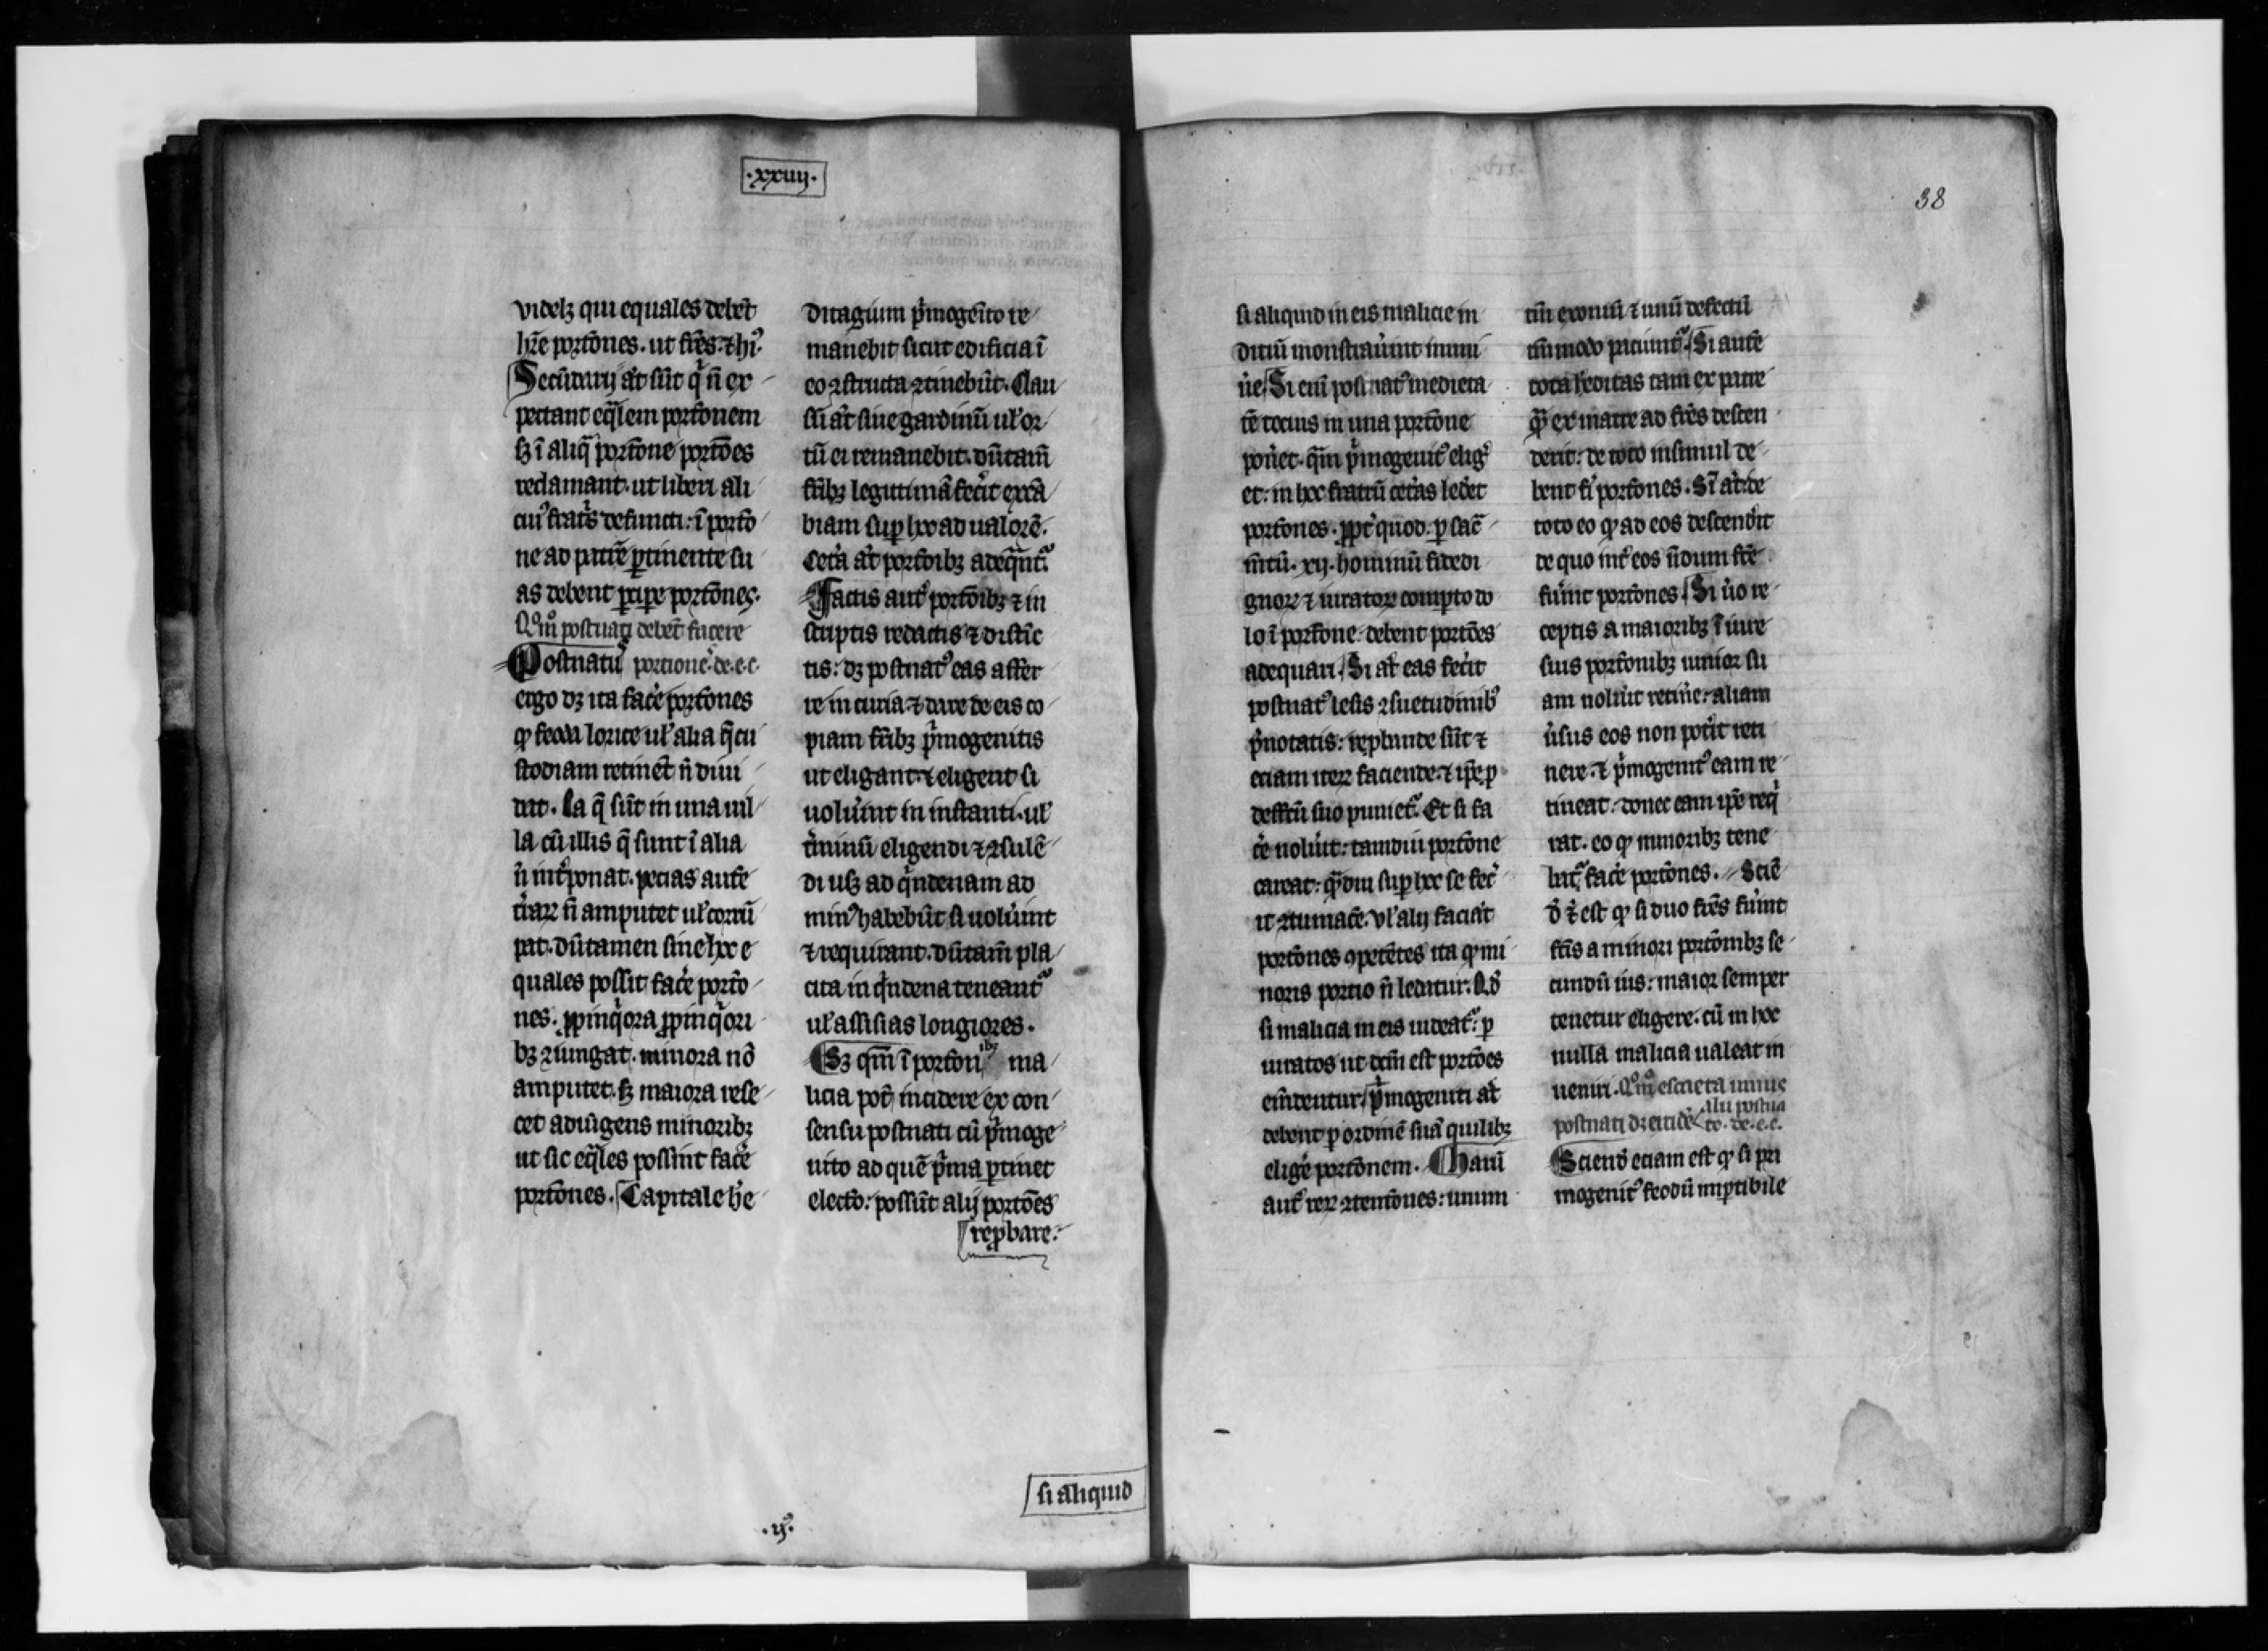 ·xxiiij·
videlꝫ qui equales debēt
hr̄e portōnes. ut fr̄es. ⁊ hiꝰ.
Secūdarij aūt sūt q̄ n̄ ex
pectant eq̄lem portōnem
sꝫ ī aliq̄ portōne portōes
reclamant. ut liberi ali
cuiꝰ frat̄s defuncti: ī portō
ne ad patrē ꝑtinente su
as debent ꝑcipe portōnes.
Qͦmͦ postnati debēt facere
Postnatꝰ portiones. de. e. c.
ergo dꝫ ita facē portōnes
ꝙ feoda lorice ul̓ alia q̄ cu
stodiam retinēt n̄ diui
dat. Ea q̄ sūt in una uil
la cū illis q̄ sunt ī alia
n̄ int̓ponat. pecias autē
t̓raꝝ n̄ amputet ul̓ corrū
pat. dūtamen sine hoc e
quales possit facē portō
nes. ꝓpinq̓ora ꝓpinq̓ori
bꝫ ꝯiungat. minora nō
amputet. sꝫ maiora rese
cet adiūgens minoribꝫ
ut sic eq̄les possint facē
portōnes. Capitale he
ditagium p̓mogēito re
manebit sicut edificia ī
eo ꝯstructa ꝯtinebūt. Clau
sū aūt siue gardinū ul̓ or
tū ei remanebit. dūtam̄
fr̄ibꝫ legittimā fecit excā
biam suꝑ hoc ad ualorē.
Cet̓a aūt portōibꝫ adeq̄nt̄.
Factis aut̓ portōibꝫ ⁊ in
scriptis redactis ⁊ distīc
tis: dꝫ postnatꝰ eas affer
re in curia ⁊ dare de eis co
piam fr̄ibꝫ p̓mogenitis
ut eligant. ⁊ eligent si
uolūint in instanti. ul̓
t̓minū eligendi ⁊ ꝯsulē
di usꝫ ad q̓ndenam ad
minꝰ habebūt si uolūint
⁊ requirant. dūtam̄ pla
cita in q̓ndena teneant̄
ul̓ assisias longiores.
Sꝫ qm̄ ī portōnibꝫ ma
licia pōt incidere ex con
sensu postnati cū p̓moge
nito ad quē p̓ma ꝑtinet
electō: possūt alij portōes
reꝓbare.
si aliquid
.ijꝰ.
38
si aliquid in eis malicie in
ditiū monstraūint inuni
ūe. Si enī postnatꝰ medieta
tē tocius in una portōne
poūet. q̄m p̓mogenitꝰ elig̓
et: in hoc fratrū cet̓as ledet
portōnes. ꝓpt̓ quod. ꝑ sac̄
m̄tū. xij. hominū fidedi
gnoꝝ ⁊ iuratoꝝ compto do
lo ī portōne. debent portōes
adequari. Si aūt eas fecit
postnatꝰ lesis ꝯsuetudinibꝰ
p̓notatis: reꝓbande sūt ⁊
eciam iteꝝ faciende. ⁊ ip̄e ꝑ
deffc̄u suo puniet̄. Et si fa
cē noluīt: tamdiu portōne
careat: q̄mdiu suꝑ hoc se fec̓
it ꝯtumacē. Vl̓ alij faciāt
portōnes ꝯpetētes ita ꝙ mi
noris portio n̄ ledatur. Qd̓
si malicia in eis uideat̄: ꝑ
iuratos ut dc̄m est portōes
em̄dentur. p̓mogeniti aūt
debent ꝑ ordinē suā quilibꝫ
eligē portōnem. Haru
aut̓ reꝝ ꝯtentōnes: unum
tm̄ exoniū ⁊ unū defectū
tm̄modo paciunt̄. Si autē
tota h̓editas tam ex patre
q̄ ex matre ad fr̄es descen
derit: de toto insimul de
bent fi̓ portōnes. Sī aūt: de
toto eo ꝙ ad eos descendit
de quo int̓ eos n̄dum fc̄e
fuīnt portōnes. Si ūo re
ceptis a maioribꝫ ī iure
suis portōnibꝫ iunior su
am noluīt retinē: aliam
ūsus eos non potīt reti
nere. ⁊ p̓mogenitꝰ eam re
tineat: donec eam ip̄e req̓
rat. eo ꝙ minoribꝫ tene
bat̄ facē portōnes. Sciē
d̓ ē est ꝙ si duo fr̄es fuīnt
fc̄is a minori portōnibꝫ se
cundū ius: maior semper
tenetur eligere. cū in hoc
nulla malicia ualeat in
ueniri. Qͦmͦ escaeta unius
postnati dꝫ eitidē alij postna
to. de. e. c.
Sciend̓ eciam est ꝙ si pri
mogenitꝰ feodū imꝑtibile